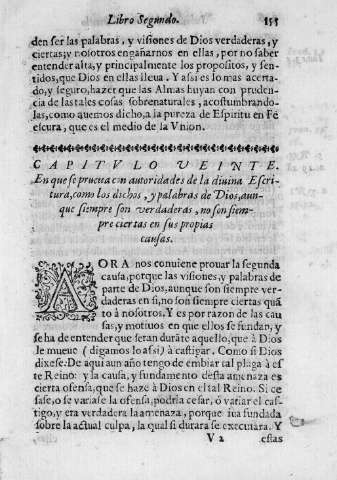 Libro Segundo. 155
den ser las palabras, y visiones de Dios verdaderas, y
ciertas; y nosotros engañarnos en ellas, por no saber
entender alta, y principalmente los propositos, y sen-
tidos, que Dios en ellas lleua. Y assi es lo mas acerta-
do, y seguro, hazer que las Almas huyan con pruden-
cia de las tales cosas sobrenaturales, acostumbrando-
las, como auemos dicho, a la pureza de Espiritu en Fè
escura, que es el medio de la Vnion.
CAPITVLO VEINTE.
En que se prueua con autoridades de la diuina Escri-
tura, como los dichos, y palabras de Dios, aun-
que siempre son verdaderas, no son siem-
pre ciertas en sus propias
causas.
AORA nos conuiene prouar la segunda
causa, porque las visiones, y palabras de
parte de Dios, aunque son siempre ver-
daderas en si, no son siempre ciertas quã
to à nosotros. Y es por razon de las cau
sas, y motiuos en que ellos se fundan, y
se ha de entender que seràn durãte aquello, que à Dios
le mueue (digamoslo assi) à castigar. Como si Dios
dixese: De aqui aun año tengo de embiar tal plaga à es
te Reino: y la causa, y fundamento desta amenaza es
cierta ofensa, que se haze à Dios en el tal Reino. Si ce
sase, o se variase la ofensa, podria cesar, ò variar el cas-
tigo, y era verdadera la amenaza, porque iua fundada
sobre la actual culpa, la qual si durara se executara. Y
V 2 estas